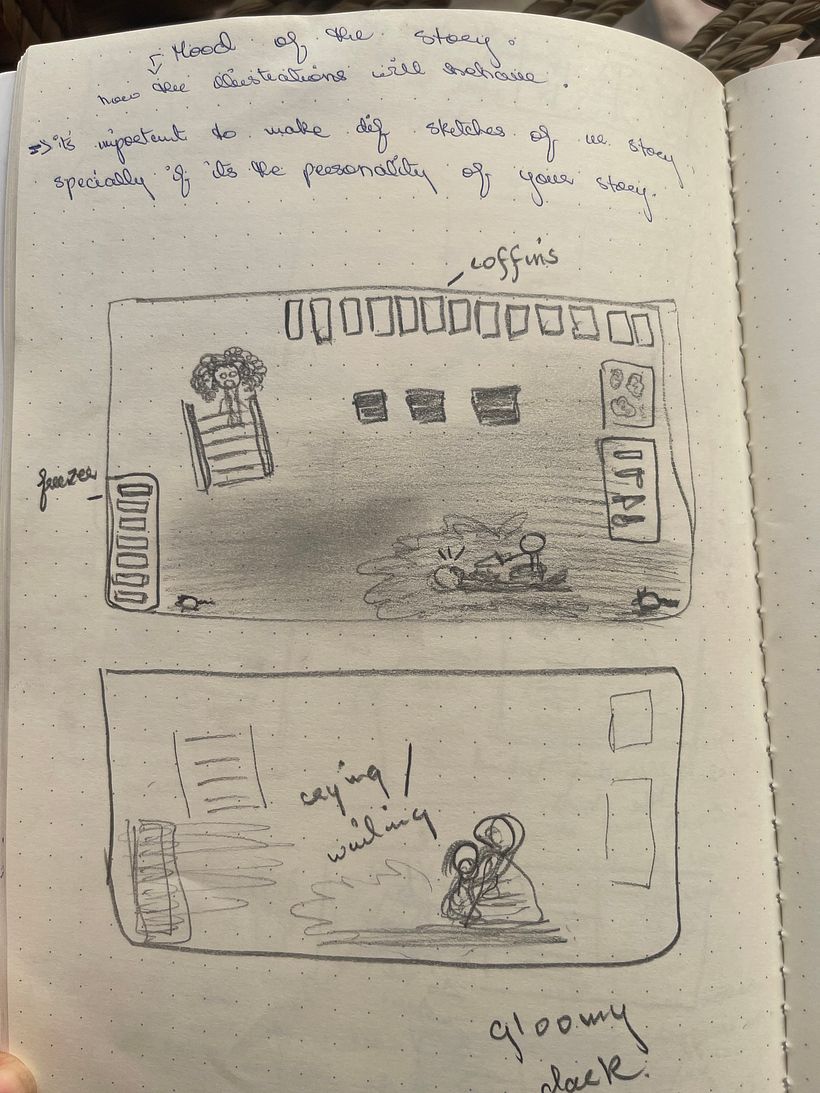 Mood of the story:
how the illustrations will behave.
=> it's important to make dif sketches of ur story
specially if its the personality of your story.
coffins
freezer
crying /
wailing
gloomy
dark.